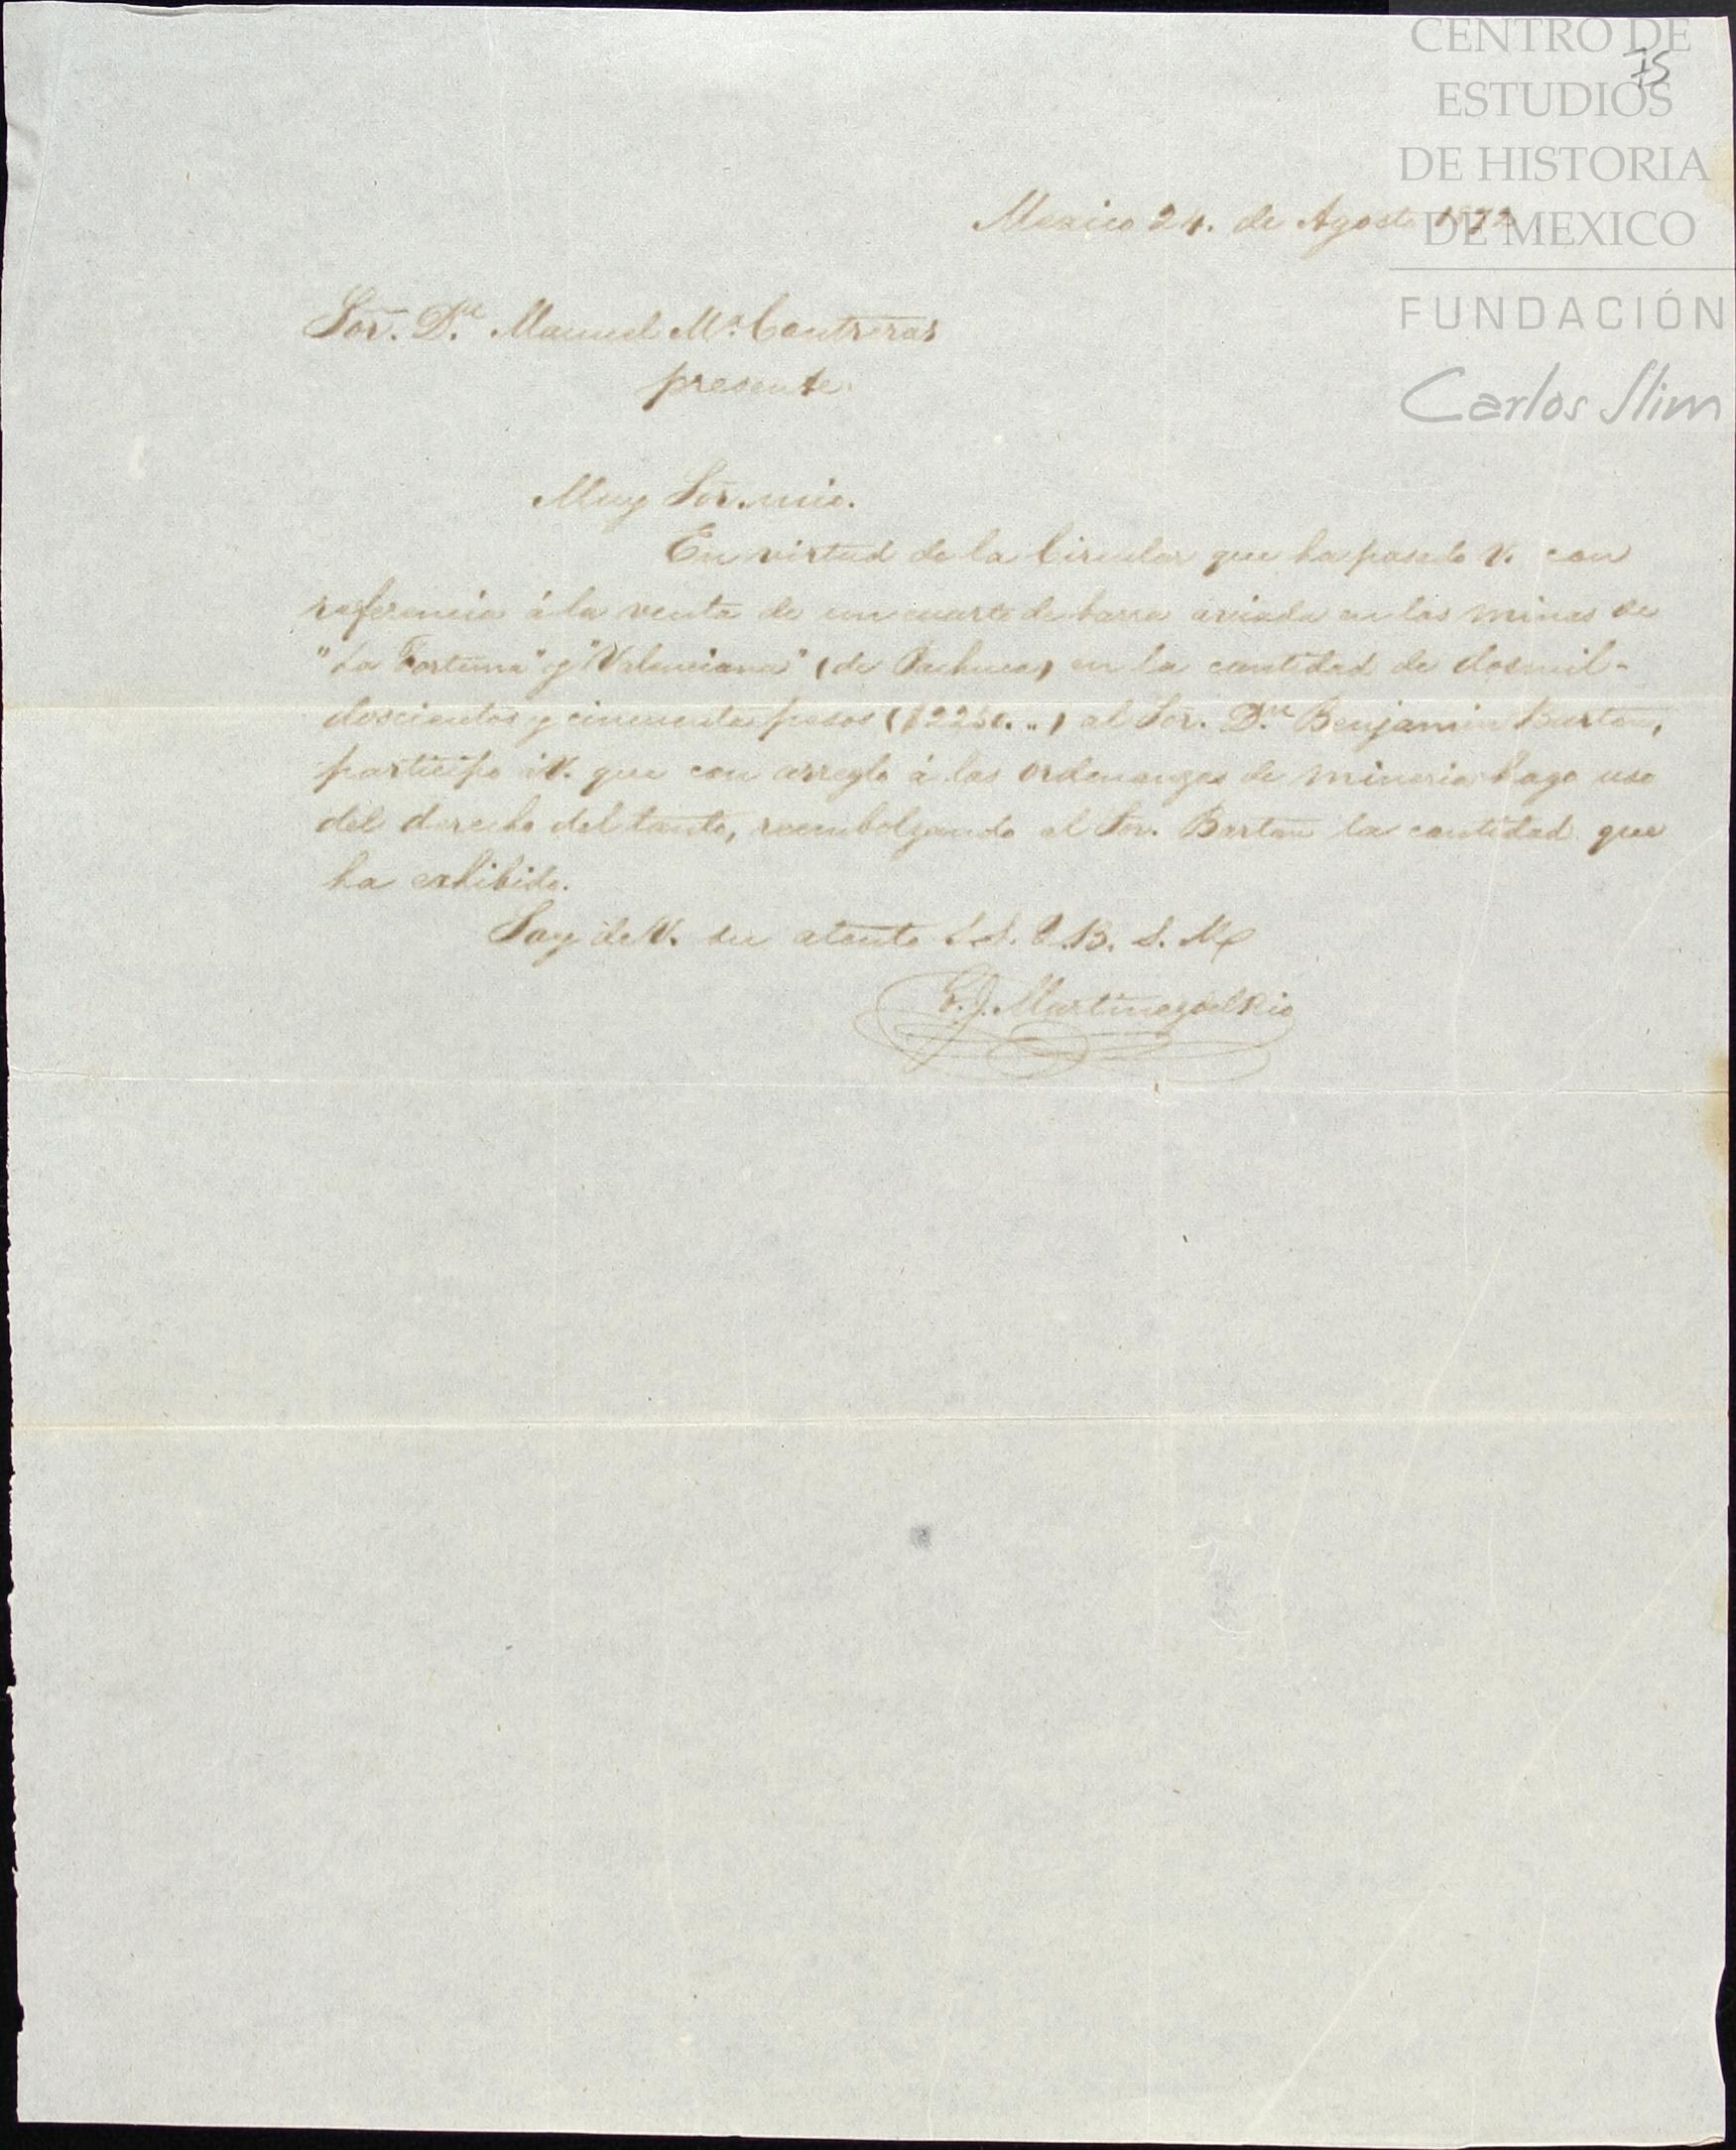 CENTRO DE
ESTUDIOS
DE HISTORIA
DE MEXICO
FUNDACIÓN
Carlos Slim
75
Mexico 24. de Agosto 1872
Sor. Dn. Manuel Ma. Contreras
presente.
Muy Sor. mio.
En virtud de la Circular que ha pasado V. con
referencia á la venta de un cuarto de barra aviada en las minas de
"La Fortuna" y "Valenciana" (de Pachuca) en la cantidad de dosmil-
doscientos y cincuenta pesos ($2250...) al Sor. Dn. Benjamin Burton,
participo á V. que con arreglo á las ordenanzas de mineria hago uso
del derecho del tanto, reembolzando al Sor. Barton la cantidad que
ha exhibido.
Soy de V. su atento S.S. Q.B.S.M.
Martinez del Rio